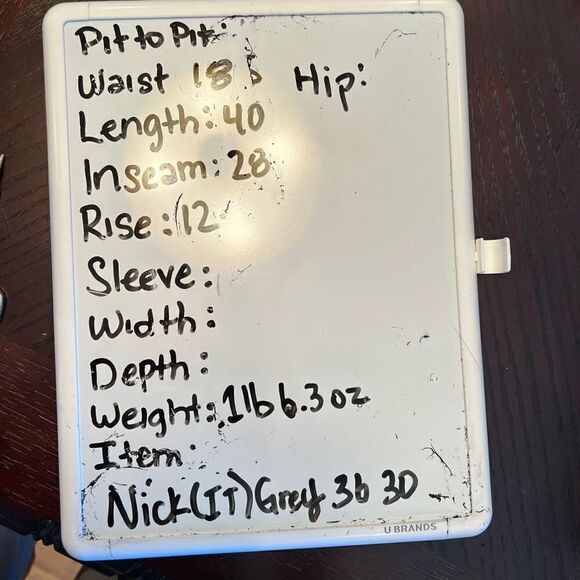 Pit to Pit:
Waist 18 Hip:
Length: 40
Inseam: 28
Rise: 12
Sleeve:
Width:
Depth:
Weight: 1lb 6.3 oz
Item:
Nick (IT) Grey 36 30
U BRANDS